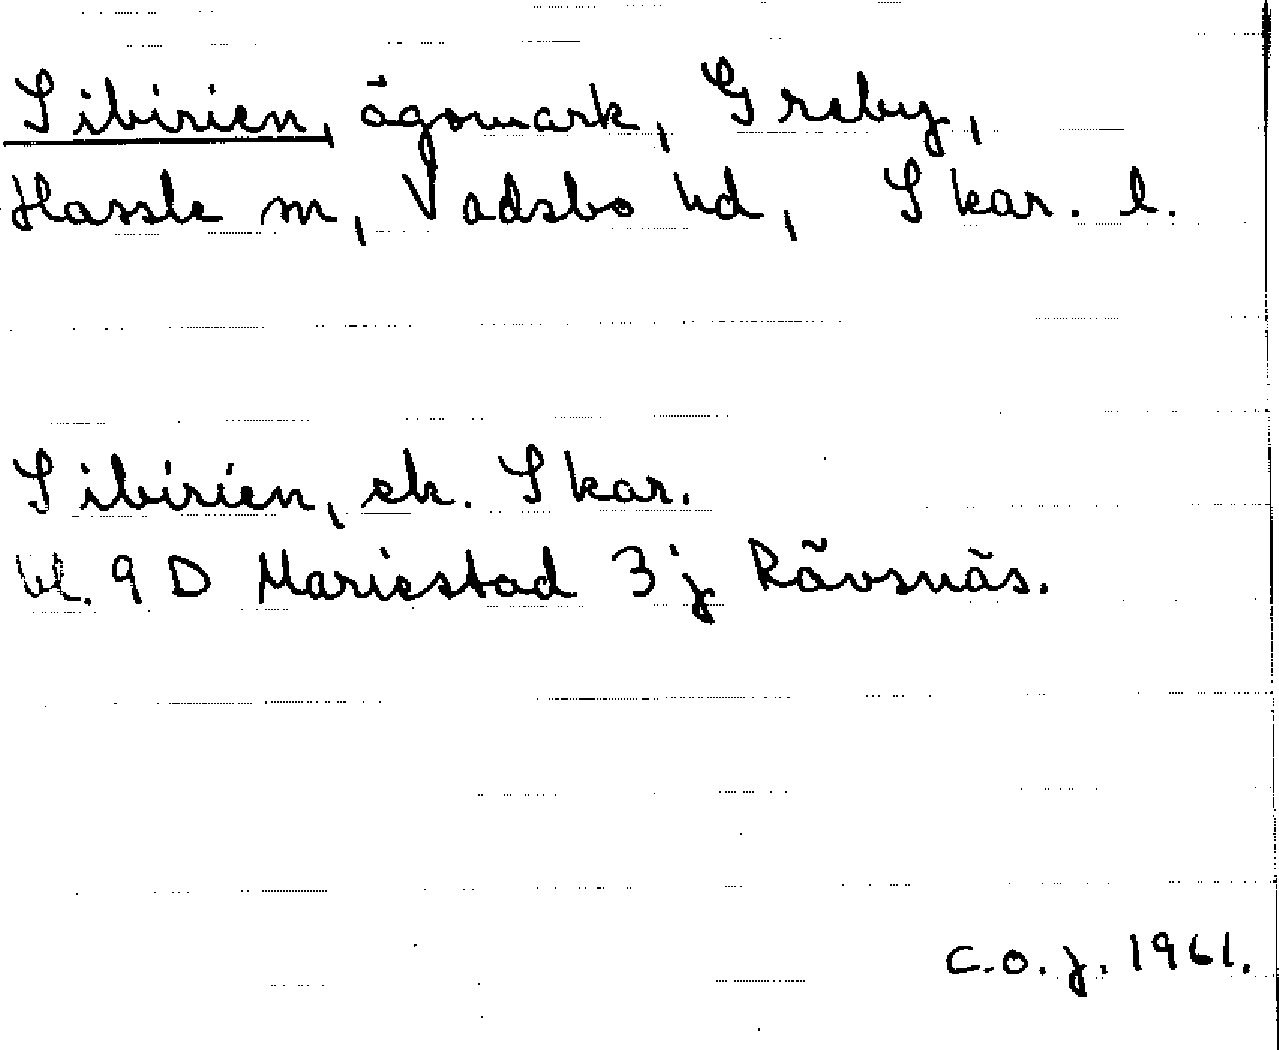 Sibirien, ägomark, Greby,
Hassle sn, Vadsbo hd, Skar. l.
Sibirien, ek. Skar.
bl. 9 D Mariestad 3 j Rävsnäs.
C.O.J. 1961.